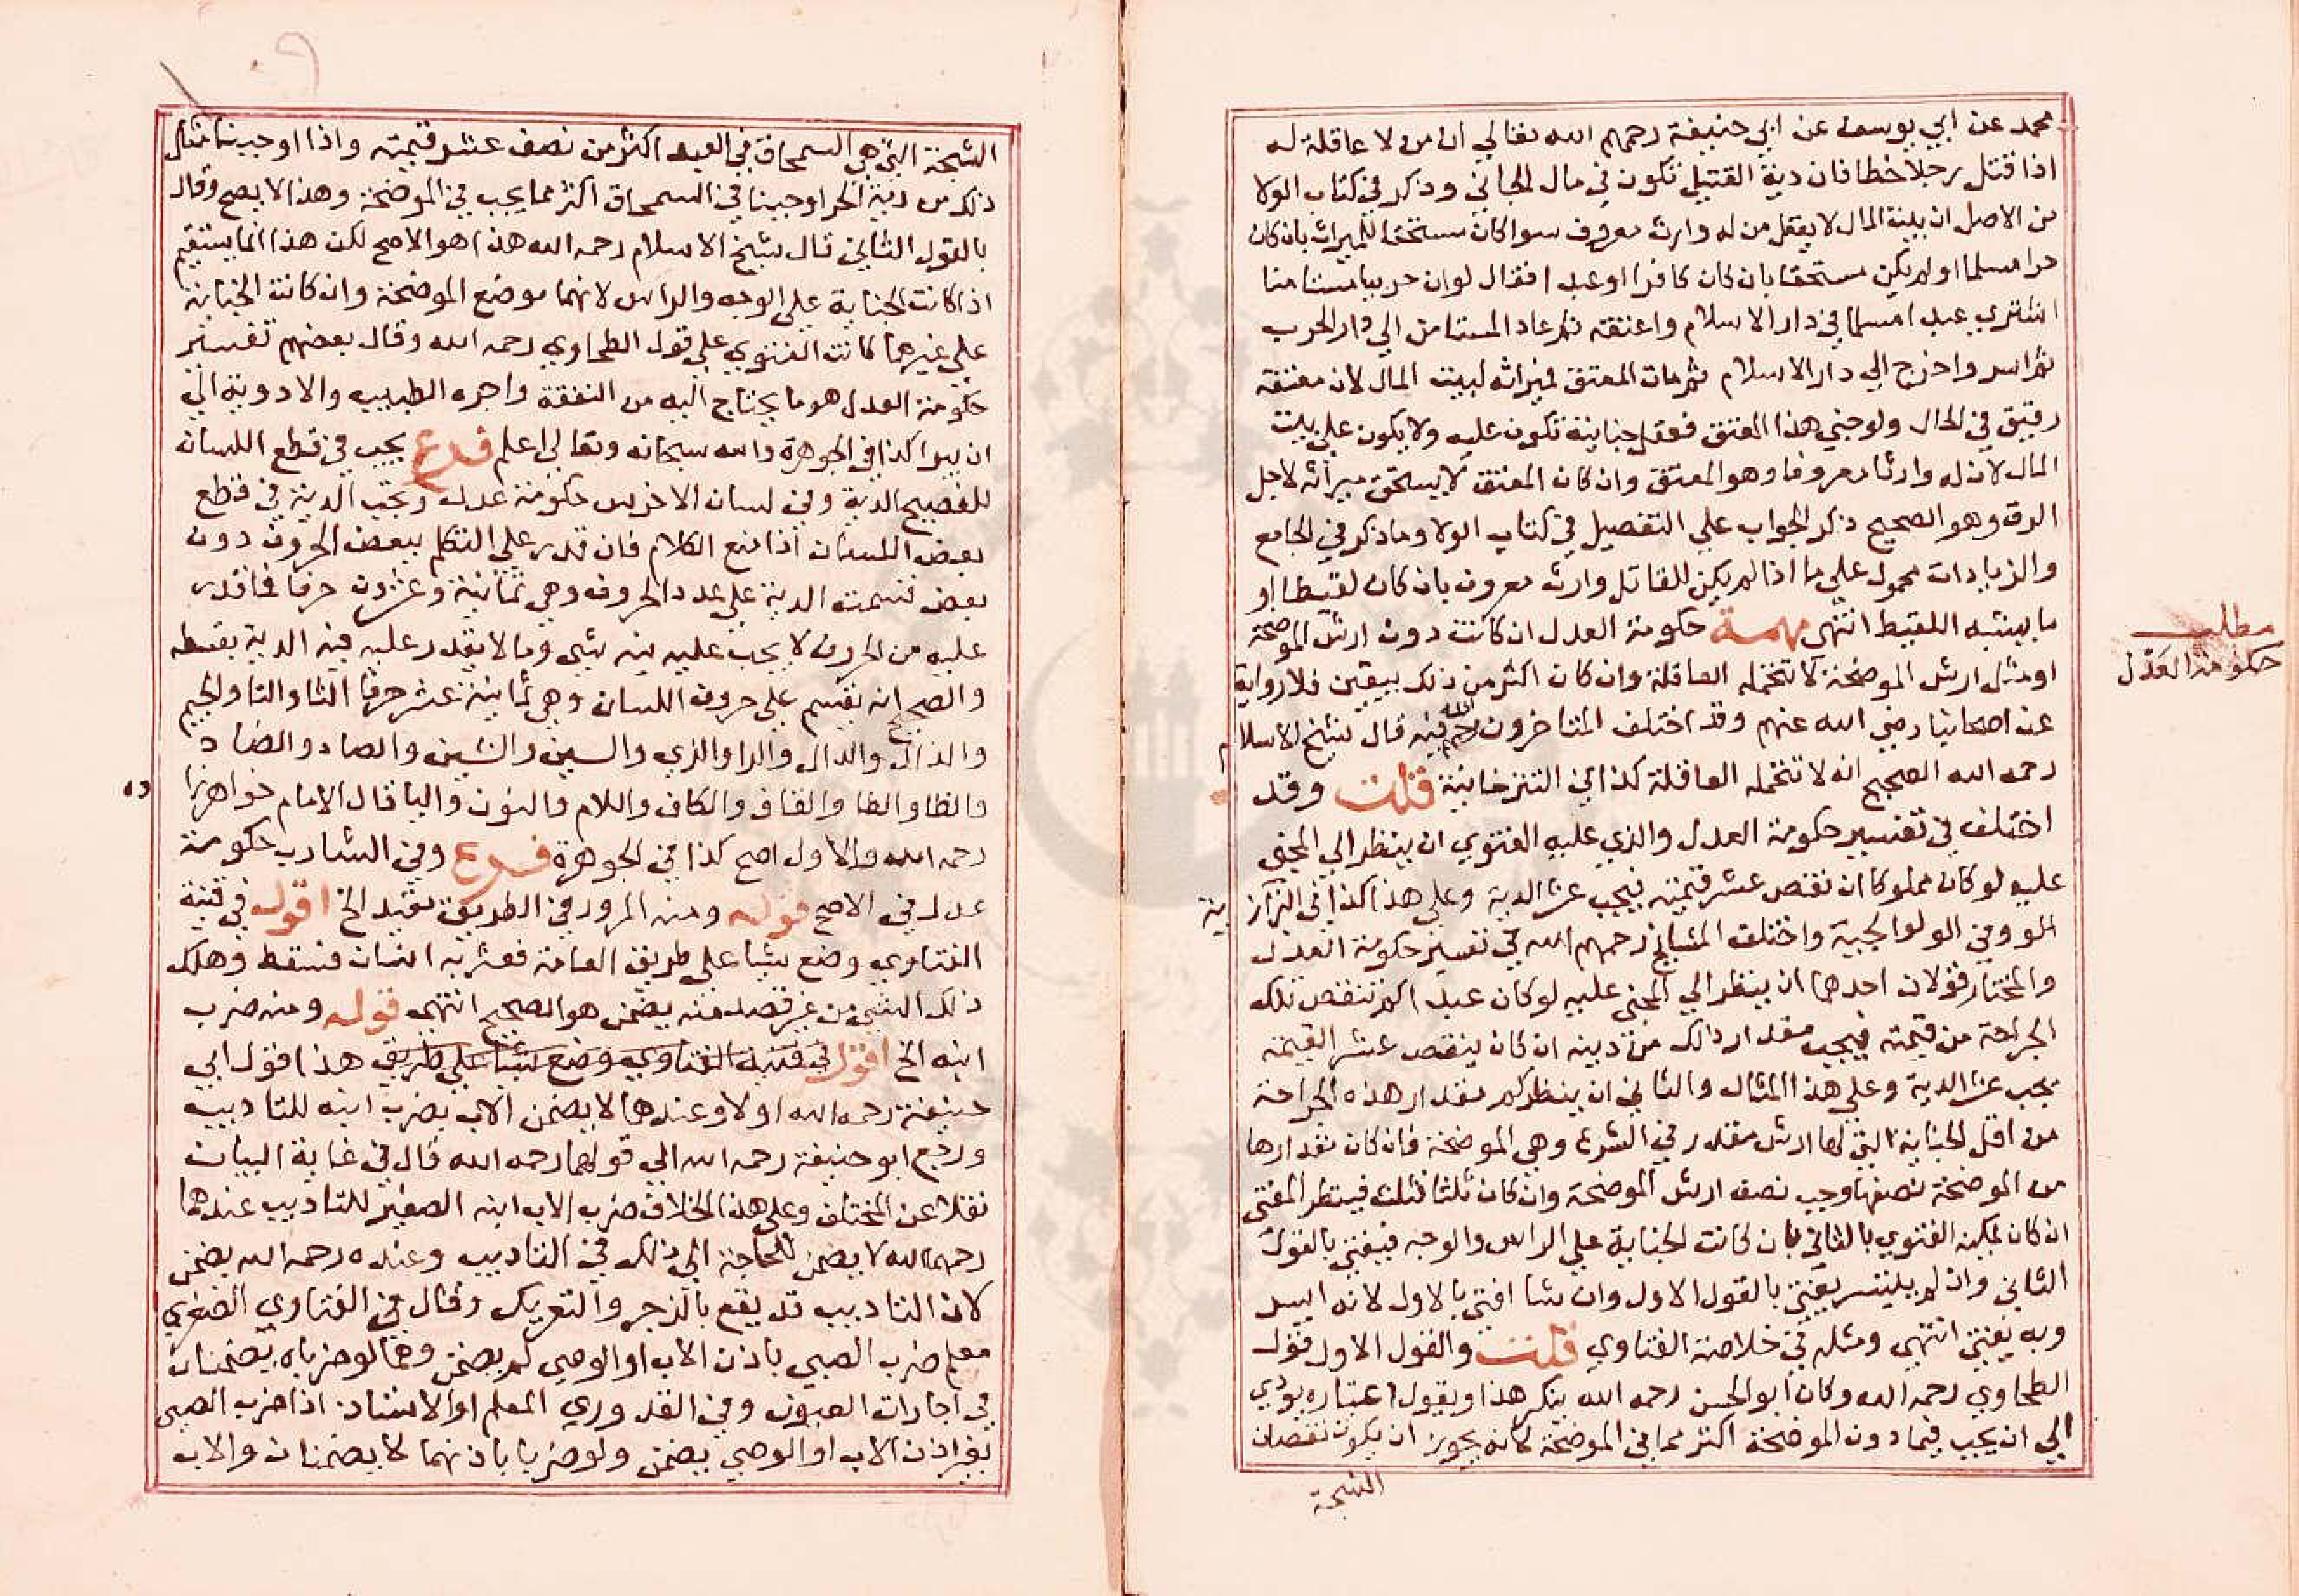 محمد عن ابي يوسف عن ابي حنيفة رحمهم الله تعالي ان من لا عاقلة له
اذا قتل رجلا خطا فان دية القتيل تكون في مال الجاني وذكر في كتاب الولا
من الاصل ان بيت المال لا يعقل من له وارث معروف سوا كان مستحقا للميراث بان كان
حرا مسلما او لم يكن مستحقا بان كان كافرا او عبدا فقال لو ان حربيا مستامنا
اشتري عبدا مسلما في دار الاسلام واعتقه ثم عاد المستامن الي دار الحرب
ثم اسر واخرج الي دار الاسلام ثم مات المعتق فميراثه لبيت المال لان معتقه
رقيق في الحال ولو جني هذا المعتق فعقل جنايته تكون عليه ولا يكون علي بيت
المال لان له وارثا معروفا وهو المعتق وان كان المعتق لا يستحق ميراثه لاجل
الرق وهو الصحيح ذكر الجواب علي التفصيل في كتاب الولا وما ذكر في الجامع
والزيادات محمول علي ما اذا لم يكن للقاتل وارث معروف بان كان لقيطا او
ما يشبه اللقيط انتهى مهمة حكومة العدل ان كانت دون ارش الموضحة
مطلب
حكومة العدل
او مثل ارش الموضحة لا تتحمله العاقلة وان كان اكثر من ذلك بيقين فلا رواية
عن اصحابنا رضي الله عنهم وقد اختلف المتاخرون رحمهم الله فيه قال شيخ الاسلام
رحمه الله الصحيح انه لا تتحمله العاقلة كذا في التترخانية قلت وقد
اختلف في تفسير حكومة العدل والذي عليه الفتوي ان ينظر الي المجني
عليه لو كان مملوكا ان نقص عشر قيمته فيجب عشر الدية وعلي هذا كذا في البزازية
اهو وفي الولوالجية واختلف المشايخ رحمهم الله في تفسير حكومة العدل
والمختار قولان احدهما ان ينظر الي المجني عليه لو كان عبدا كم تنقص تلك
الجراحة من قيمته فيجب مقدار ذالك من ديته ان كان ينقص عشر القيمة
يجب عشر الدية وعلي هذا المثال والثاني ان ينظر كم مقدار هذه الجراحة
من اقل الجناية التي لها ارش مقدر في الشرع وهي الموضحة فان كان مقدارها
من الموضحة نصفها وجب نصف ارش الموضحة وان كان ثلثا فثلث فينظر المفتي
ان كان يمكنه الفتوي بالثاني بان كانت الجناية علي الراس والوجه فيفتي بالقول
الثاني وان لم يتيسر يفتي بالقول الاول وان شا افتي بالاول لانه ايسر
وبه يفتي انتهي ومثله في خلاصة الفتاوي قلت والقول الاول قول
الطحاوي رحمه الله وكان ابو الحسن رحمه الله ينكر هذا ويقول اعتباره يودي
الي ان يجب فيما دون الموضحة اكثر مما في الموضحة لانه يجوز ان يكون نقصان
الشجة
الشجة التي هي السمحاق في العبد اكثر من نصف عشر قيمته واذا اوجبنا مثال
ذلك من دية الحر اوجبنا في السمحاق اكثر مما يجب في الموضحة وهذا لا يصح وقال
بالقول الثاني قال شيخ الاسلام رحمه الله هذا هو الاصح لكن هذا انما يستقيم
اذا كانت الجناية علي الوجه والراس لانهما موضع الموضحة وان كانت الجناية
علي غيرهما كانت الفتوي علي قول الطحاوي رحمه الله وقال بعضهم تفسير
حكومة العدل هو ما يحتاج اليه من النفقة واجرة الطبيب والادوية الي
ان يبرا كذا في الجوهرة والله سبحانه وتعالي اعلم فرع يجب في قطع اللسان
للفصيح الدية وفي لسان الاخرس حكومة عدل وتجب الدية في قطع
بعض اللسان اذا منع الكلام فان قدر علي التكلم ببعض الحروف دون
بعض قسمت الدية علي عدد الحروف وهي ثمانية وعشرون حرفا فما قدر
عليه من الحروف لا يجب عليه فيه شي وما لا يقدر عليه فيه الدية بقسطه
والصحيح انه يقسم علي حروف اللسان وهي ثمانية عشر حرفا الثا والتا والجيم
والذال والدال والرا والزي والسين والشين والصاد والضاد
والظا والطا والقاف والكاف واللام والنون واليا قال الامام خواهرزاده
رحمه الله والاول اصح كذا في الجوهرة فرع وفي الشارب حكومة
عدل في الاصح قوله ومنه المرور في الطريق يقيد الخ اقول في قنية
الفتاوي وضع شيا علي طريق العامة فعثر به انسان فسقط وهلك
ذلك الشي من غير قصد منه يضمن هو الصحيح انتهي قوله ومنه ضرب
ابنه الخ اقول في قنية الفتاوي وضع شيا علي طريق هذا قول ابي
حنيفة رحمه الله اولا وعندهما لا يضمن الاب بضرب ابنه للتاديب
ورجع ابو حنيفة رحمه الله الي قولهما رحمه الله قال في غاية البيان
نقلا عن المختلف وعلي هذا الخلاف ضرب الاب ابنه الصغير للتاديب عندهما
رحمهما الله لا يضمن للحاجة الي ذلك في التاديب وعنده رحمه الله يضمن
لان التاديب قد يقع بالزجر والتعريك وقال في الفتاوي الصغري
معلم ضرب الصبي باذن الاب او الوصي لم يضمن وهما لو ضرباه يضمنان
في اجارات العيون وفي القدوري المعلم او الاستاد اذا ضرب الصبي
بغير اذن الاب او الوصي يضمن ولو ضربا باذنهما لا يضمنان والاب